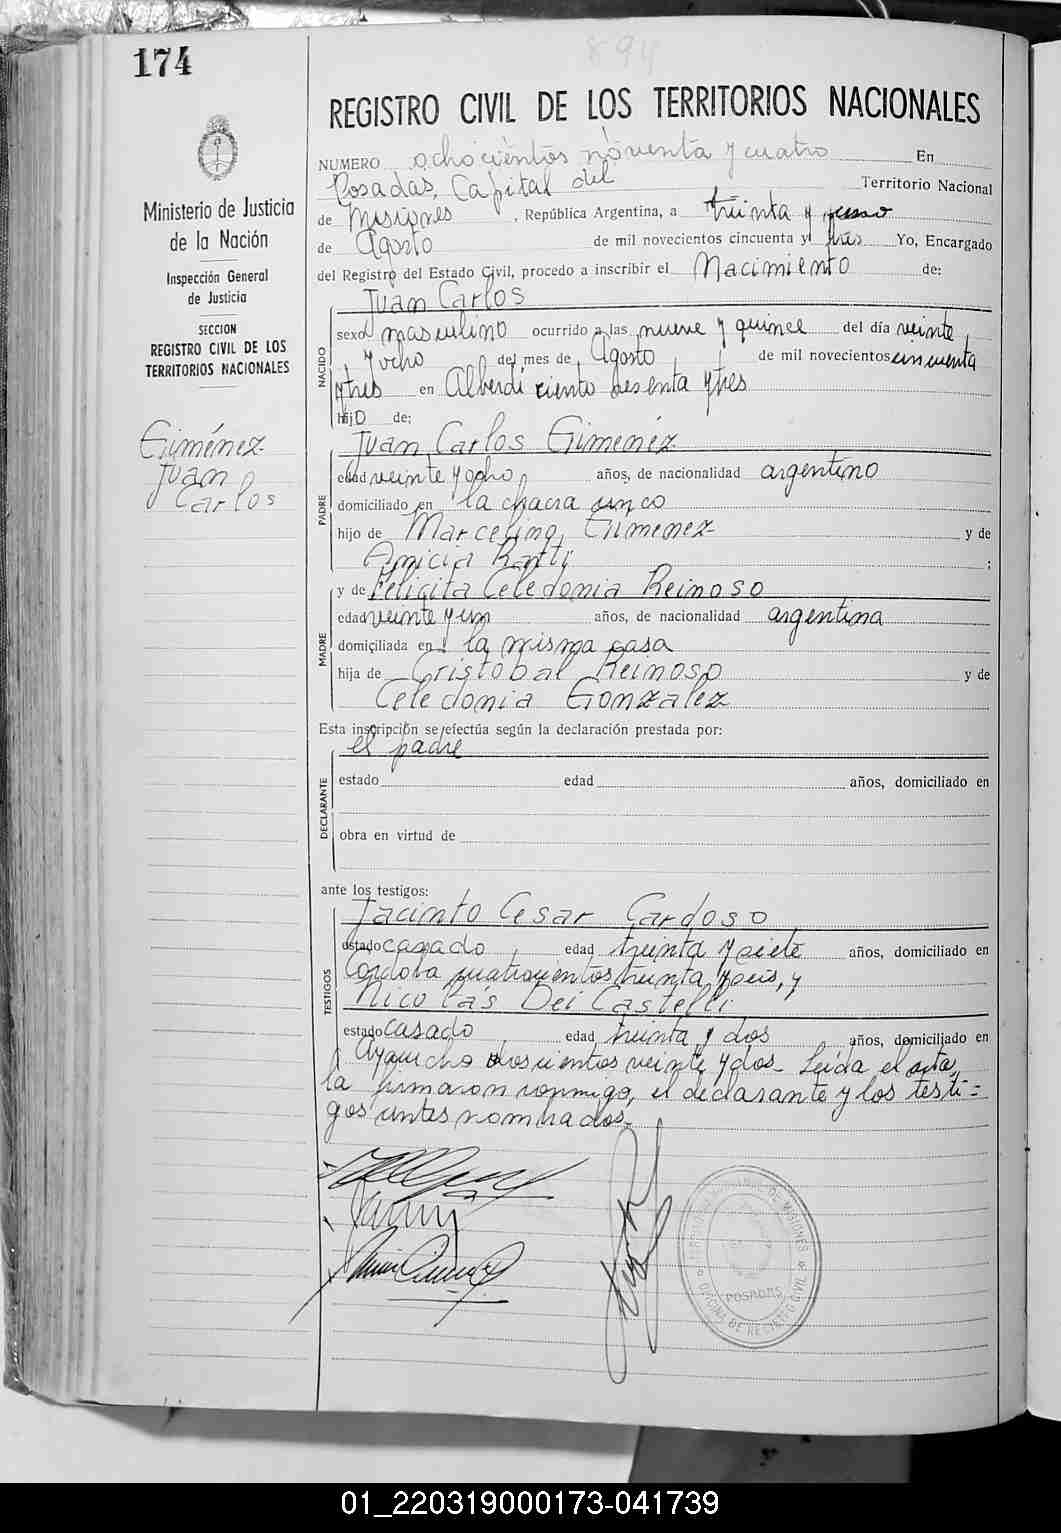 894
174
REGISTRO CIVIL DE LOS TERRITORIOS NACIONALES
NUMERO ochocientos noventa y cuatro En
Posadas, Capital del Territorio Nacional
de Misiones, República Argentina, a treinta y uno
de Agosto de mil novecientos cincuenta y tres Yo, Encargado
del Registro del Estado Civil, procedo a inscribir el Nacimiento de:
Juan Carlos
NACIDO
sexo masculino ocurrido a las nueve y quince del día veinte
y ocho del mes de Agosto de mil novecientos cincuenta
y tres en Alberdi ciento sesenta y tres
hijo de:
Ministerio de Justicia
de la Nación
Inspección General
de Justicia
SECCION
REGISTRO CIVIL DE LOS
TERRITORIOS NACIONALES
Giménez
Juan
Carlos
Juan Carlos Gimenez
PADRE
edad veinte y ocho años, de nacionalidad argentino
domiciliado en la chacra cinco
hijo de Marcelino Gimenez y de
Amicia Ratti;
MADRE
y de Felicita Celedonia Reinoso
edad veinte y un años, de nacionalidad argentina
domiciliada en la misma casa
hija de Cristobal Reinoso y de
Celedonia Gonzalez
Esta inscripción se efectúa según la declaración prestada por:
el padre
DECLARANTE
estado edad años, domiciliado en
obra en virtud de
ante los testigos:
Jacinto Cesar Cardoso
TESTIGOS
estado casado edad treinta y siete años, domiciliado en
Córdoba cuatrocientos treinta y seis, y
Nicolás Dei Castelli
estado casado edad treinta y dos años, domiciliado en
Ayacucho doscientos veinte y dos. Leída el acta,
la firmaron conmigo, el declarante y los testi=
gos antes nombrados.
MISIONES
OFICINA DE REGISTRO CIVIL
POSADAS
01_220319000173-041739